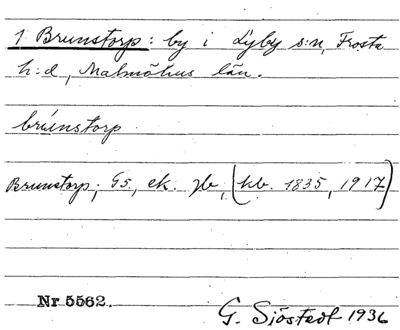 1 Brunstorp: by i Lyby s:n, Frosta
h:d, Malmöhus län.
brúnstorp
Brunstorp; GS, ek. jb, (kb. 1835, 1917)
Nr 5562.
G. Sjöstedt 1936